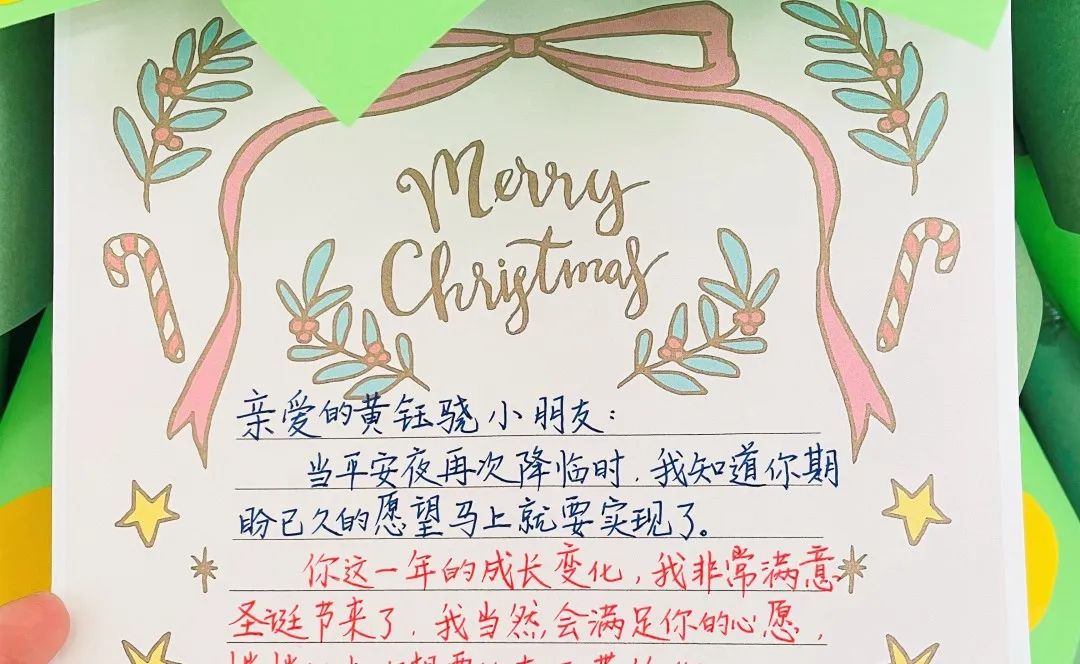 Merry
Christmas
亲爱的黄钰骁小朋友：
当平安夜再次降临时，我知道你期
盼已久的愿望马上就要实现了。
你这一年的成长变化，我非常满意
圣诞节来了，我当然会满足你的心愿，